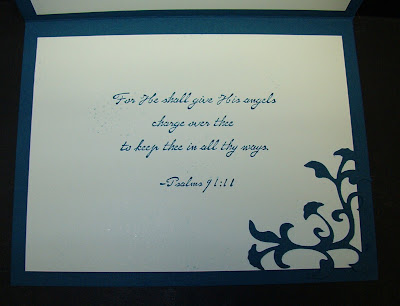 For He shall give His angels
charge over thee
to keep thee in all thy ways.
~Psalms 91:11